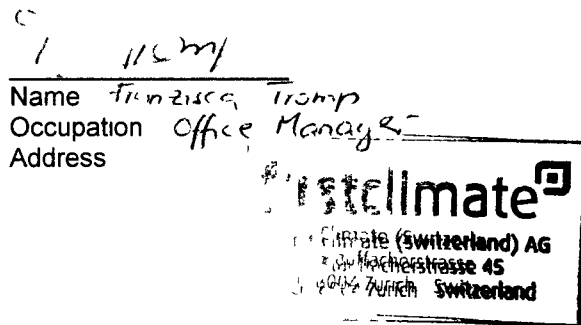 Name Franzisca Tromp
Occupation Office Manager
Address
firstclimate
Climate (Switzerland) AG
Zurich Switzerland